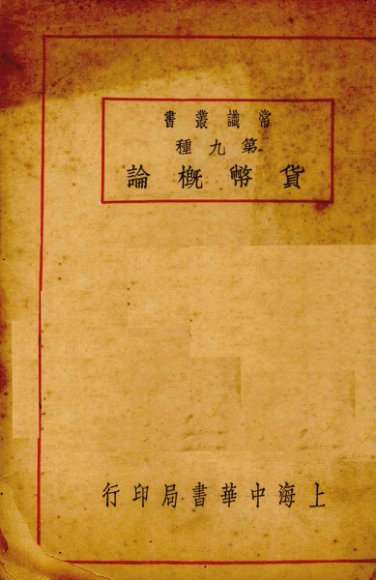 常識叢書
第九種
貨幣概論
上海中華書局印行